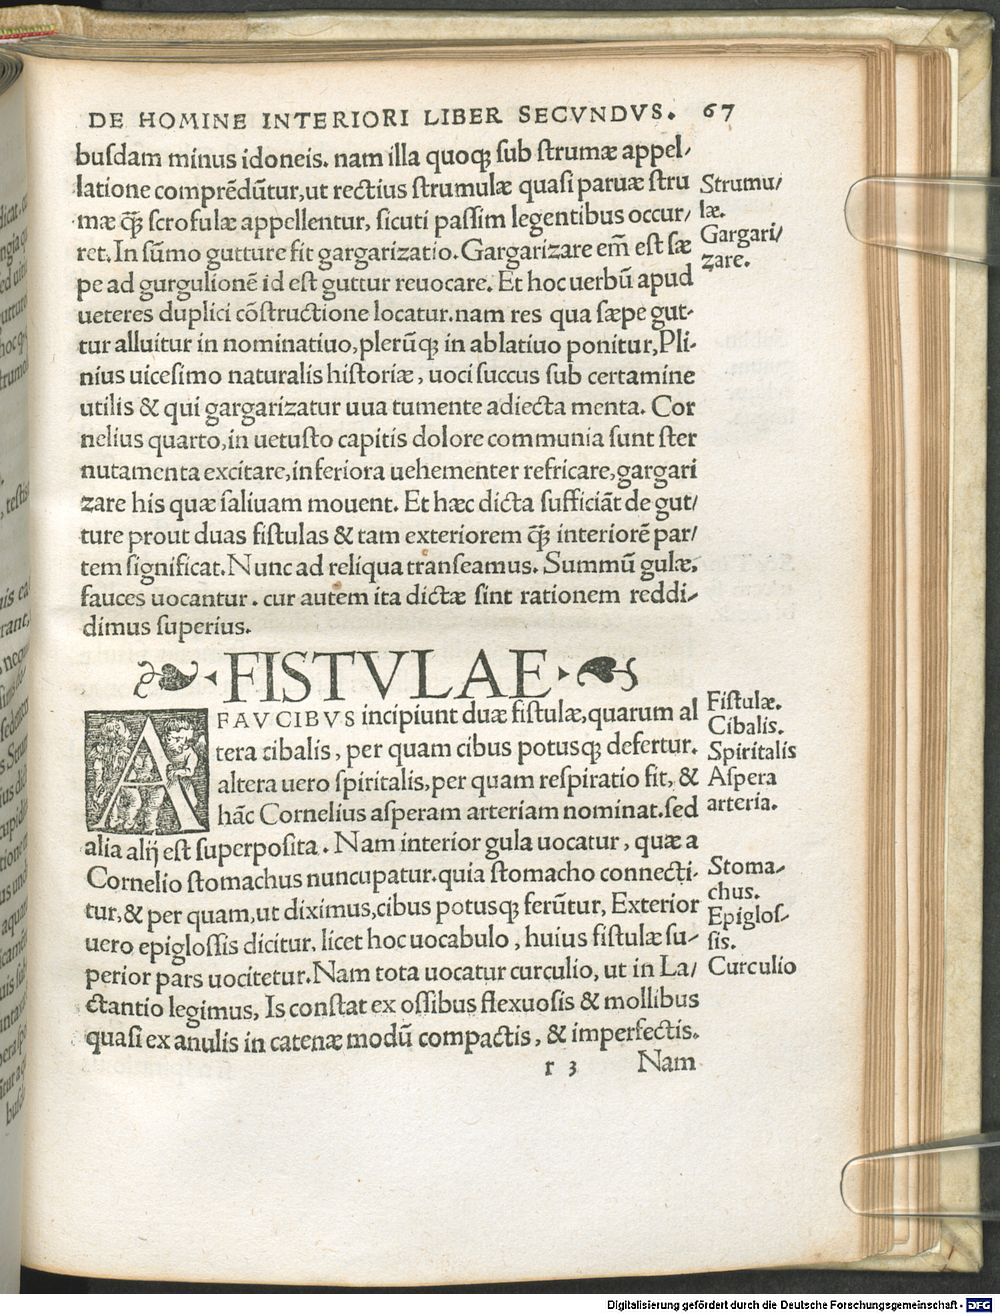 DE HOMINE INTERIORI LIBER SECVNDVS. 67
busdam minus idoneis. nam illa quoqꝫ sub strumæ appel/
latione comprẽdũtur, ut rectius strumulæ quasi paruæ stru
mæ q̃ꝫ scrofulæ appellentur, sicuti passim legentibus occur/
ret. In sũmo gutture fit gargarizatio. Gargarizare em̃ est sæ
pe ad gurgulionẽ id est guttur reuocare. Et hoc uerbũ apud
ueteres duplici cõstructione locatur. nam res qua sæpe gut-
tur alluitur in nominatiuo, plerũqꝫ in ablatiuo ponitur, Pli-
nius uicesimo naturalis historiæ, uoci succus sub certamine
utilis & qui gargarizatur uua tumente adiecta menta. Cor
nelius quarto, in uetusto capitis dolore communia sunt ster
nutamenta excitare, inferiora uehementer refricare, gargari
zare his quæ saliuam mouent. Et hæc dicta sufficiãt de gut/
ture prout duas fistulas & tam exteriorem q̃ꝫ interiorẽ par/
tem significat. Nunc ad reliqua transeamus. Summũ gulæ,
fauces uocantur. cur autem ita dictæ sint rationem reddi-
dimus superius.
Strumu/
læ.
Gargari/
zare.
FISTVLAE
A FAVCIBVS incipiunt duæ fistulæ, quarum al
tera cibalis, per quam cibus potusqꝫ defertur.
altera uero spiritalis, per quam respiratio fit, &
hãc Cornelius asperam arteriam nominat. sed
alia alij est superposita. Nam interior gula uocatur, quæ a
Cornelio stomachus nuncupatur. quia stomacho connecti-
tur, & per quam, ut diximus, cibus potusqꝫ ferũtur, Exterior
uero epiglossis dicitur, licet hoc uocabulo, huius fistulæ su-
perior pars uocitetur. Nam tota uocatur curculio, ut in La/
ctantio legimus, Is constat ex ossibus flexuosis & mollibus
quasi ex anulis in catenæ modũ compactis, & imperfectis.
Fistulæ.
Cibalis.
Spiritalis
Aspera
arteria.
Stoma-
chus.
Epiglos-
sis.
Curculio
r 3 Nam
Digitalisierung gefördert durch die Deutsche Forschungsgemeinschaft - DFG